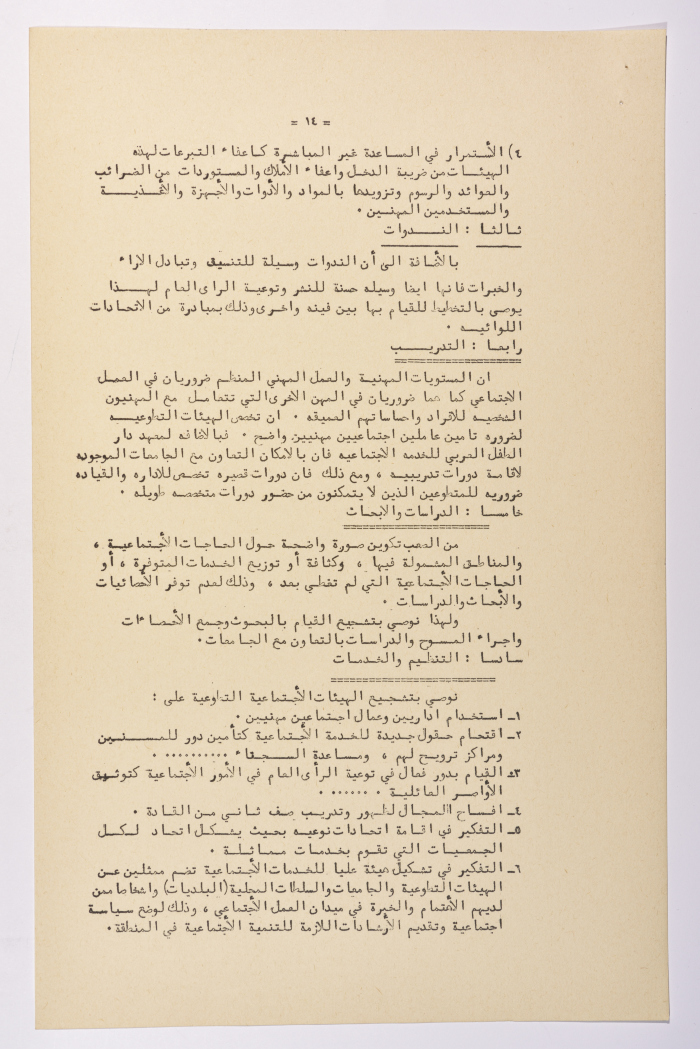 = ١٤ =
٤) الأستمرار في المساعدة غير المباشرة كاعفاء التبرعات لهذه
الهيئات من ضريبة الدخل واعفاء الأملاك والمستوردات من الضرائب
والعوائد والرسوم وتزويدها بالمواد والأدوات والأجهزة والأغذية
والمستخدمين المهنيين ٠
ثالثا : الندوات
بالأضافة الى أن الندوات وسيلة للتنسيق وتبادل الاراء
والخبرات فانها ايضا وسيله حسنة للنشر وتوعية الراى العام لهذا
يوصى بالتخطيط للقيام بها بين فينه واخرى وذلك بمبادرة من الاتحادات
اللوائيه ٠
رابعا : التدريب
ان المستويات المهنية والعمل المهني المنظم ضروريان في العمل
الاجتماعي كما هما ضروريان في المهن الاخرى التي تتعامل مع المهنيون
الشخصيه للافراد واحساساتهم العميقه ٠ ان تخص الهيئات التطوعيه
لضروره تامين عاملين اجتماعيين مهنيين واضح ٠ فبالاضافه لمعهد دار
الطفل العربي للخدمه الاجتماعيه فان بالامكان التعاون مع الجامعات الموجوده
لاقامة دورات تدريبيه ، ومع ذلك فان دورات قصيره تخصص للاداره والقياده
ضروريه للمتطوعين الذين لا يتمكنون من حضور دورات متخصصه طويله ٠
خامسا : الدراسات والابحاث
من الصعب تكوين صورة واضحة حول الحاجات الأجتماعية ،
والمناطق المشمولة فيها ، وكثافة أو توزيع الخدمات المتوفرة ، أو
الحاجات الأجتماعية التي لم تغطي بعد ، وذلك لعدم توفر الأحصائيات
والأبحاث والدراسات ٠
ولهذا نوصي بتشجيع القيام بالبحوث وجمع الأحصاءات
واجراء المسوح والدراسات بالتعاون مع الجامعات٠
سادسا : التنظيم والخدمات
نوصي بتشجيع الهيئات الأجتماعية التطوعية على :
١ـ استخدام اداريين وعمال اجتماعين مهنيين ٠
٢ـ اقتحام حقول جديدة للخدمة الأجتماعية كتأمين دور للمسنين
ومراكز ترويح لهم ، ومساعدة السجناء ٠٠٠٠٠٠٠٠٠٠
٣ـ القيام بدور فعال في توعية الرأى العام في الأمور الأجتماعية كتوثيق
الأواصر العائلية ٠ ٠٠٠٠٠٠
٤ـ افساح المجال لظهور وتدريب صف ثاني من القادة ٠
٥ـ التفكير في اقامة اتحادات نوعيه بحيث يشكل اتحاد لكل
الجمعيات التي تقوم بخدمات مماثلة ٠
٦ـ التفكير في تشكيل هيئة عليا للخدمات الأجتماعية تضم ممثلين عن
الهيئات التطوعية والجامعات والسلطات المحلية (البلديات) واشخاصا ممن
لديهم الأهتمام والخبرة في ميدان العمل الأجتماعي ، وذلك لوضع سياسة
اجتماعية وتقديم الأرشادات اللازمة للتنمية الأجتماعية في المنطقة٠